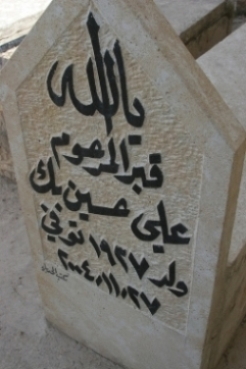 يا الله
قبر المرحوم
علي حسين بك
ولد ١٩٢٧ توفي
٢٠٠٤،١١،٢٧